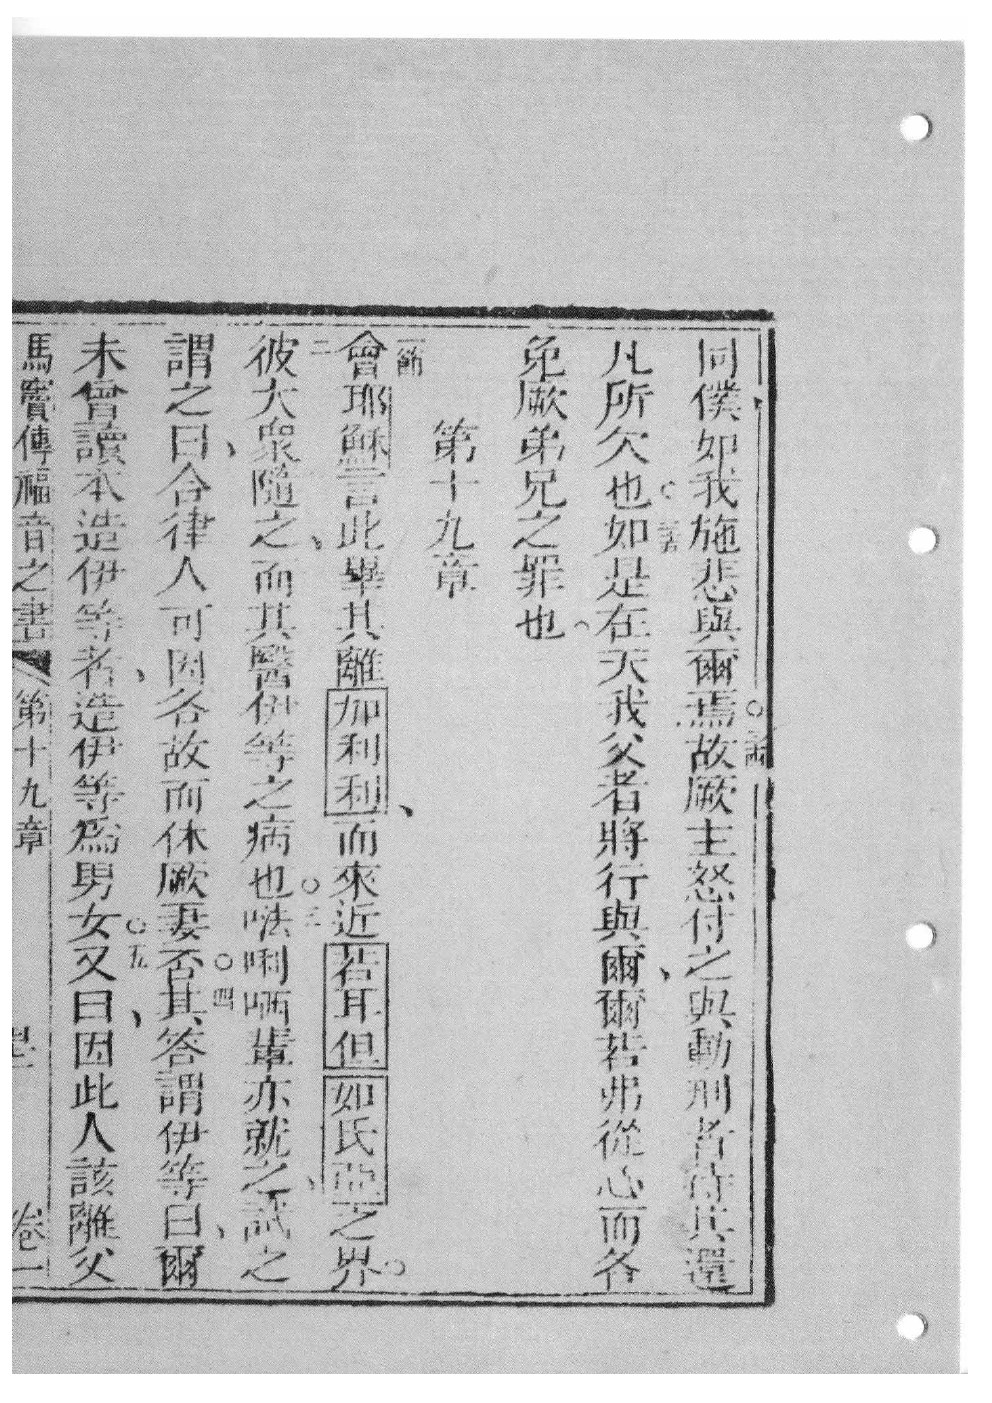 同僕如我施悲與爾焉故厥主怒付之與動刑者待其還
凡所欠也如是在天我父者將行與爾爾若弗從心而各
免厥弟兄之罪也
第十九章
一節會耶穌言此畢其離加利利而來近若耳但如氏亞之界
二彼大衆隨之而其醫伊等之病也三𠵽唎哂輩亦就之試之
謂之曰合律人可因各故而休厥妻否四其答謂伊等曰爾
未曾讀本造伊等者造伊等爲男女五又曰因此人該離父
馬竇傳福音之書 第十九章 卷一